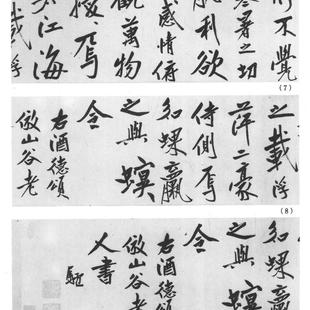 不覺
寒暑之切
肌利欲
感情俯
觀萬物
擾焉
江海
載浮
(7)
之載浮
萍二豪
侍側焉
如蜾蠃
之與螟
令
右酒德頌
倣山谷老
(8)
如蜾蠃
之與螟
令
右酒德頌
倣山谷老
人書